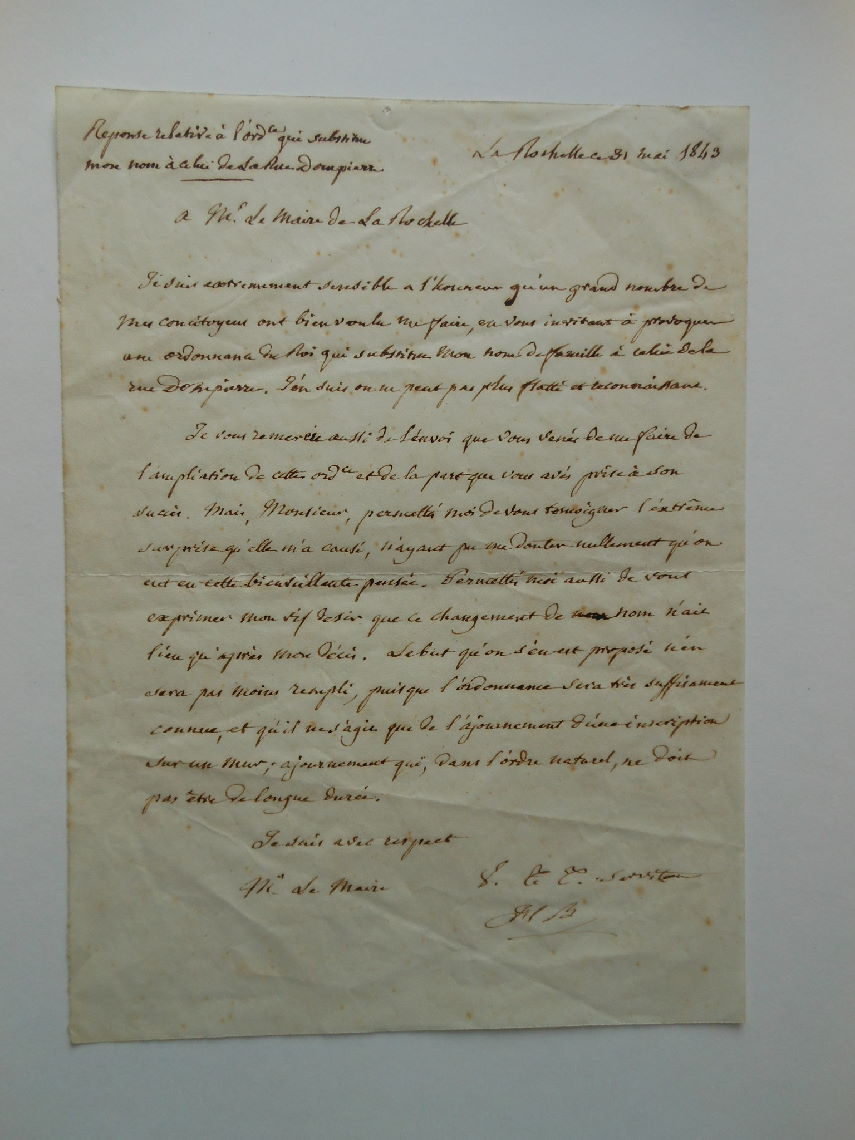 Reponse relative à l'ord.ce qui substitue
mon nom à celui de La Rue Dompierre
La Rochelle ce 31 mai 1843
a Mr. Le Maire de La Rochelle
Je suis extremement sensible a l'honneur qu'un grand nombre de
mes concitoyens ont bien voulu me faire, en vous invitant à provoquer
une ordonnance du Roi qui substitue mon nom de famille à celui de la
rue Dompierre. J'en suis on ne peut pas plus flatté et reconnaissant.
Je vous remercie aussi de l'envoi que vous venés de me faire de
l'ampliation de cette ord.ce et de la part que vous avés prise à son
succès. Mais, Monsieur, permettés moi de vous temoigner l'extrême
surprise qu'elle m'a causé, n'ayant pu me douter nullement qu'on
eut eu cette bienveillante pensée. Permettés moi aussi de vous
exprimer mon vif desir que ce changement de nom n'ait
lieu qu'après mon décès. Le but qu'on s'en est proposé n'en
sera pas moins rempli, puisque l'ordonnance sera très suffisament
connue, et qu'il ne s'agit que de l'ajournement d'une inscription
sur un mur; ajournement qui, dans l'ordre naturel, ne doit
pas être de longue durée.
Je suis avec respect
Mr. Le Maire
V. T. serviteur